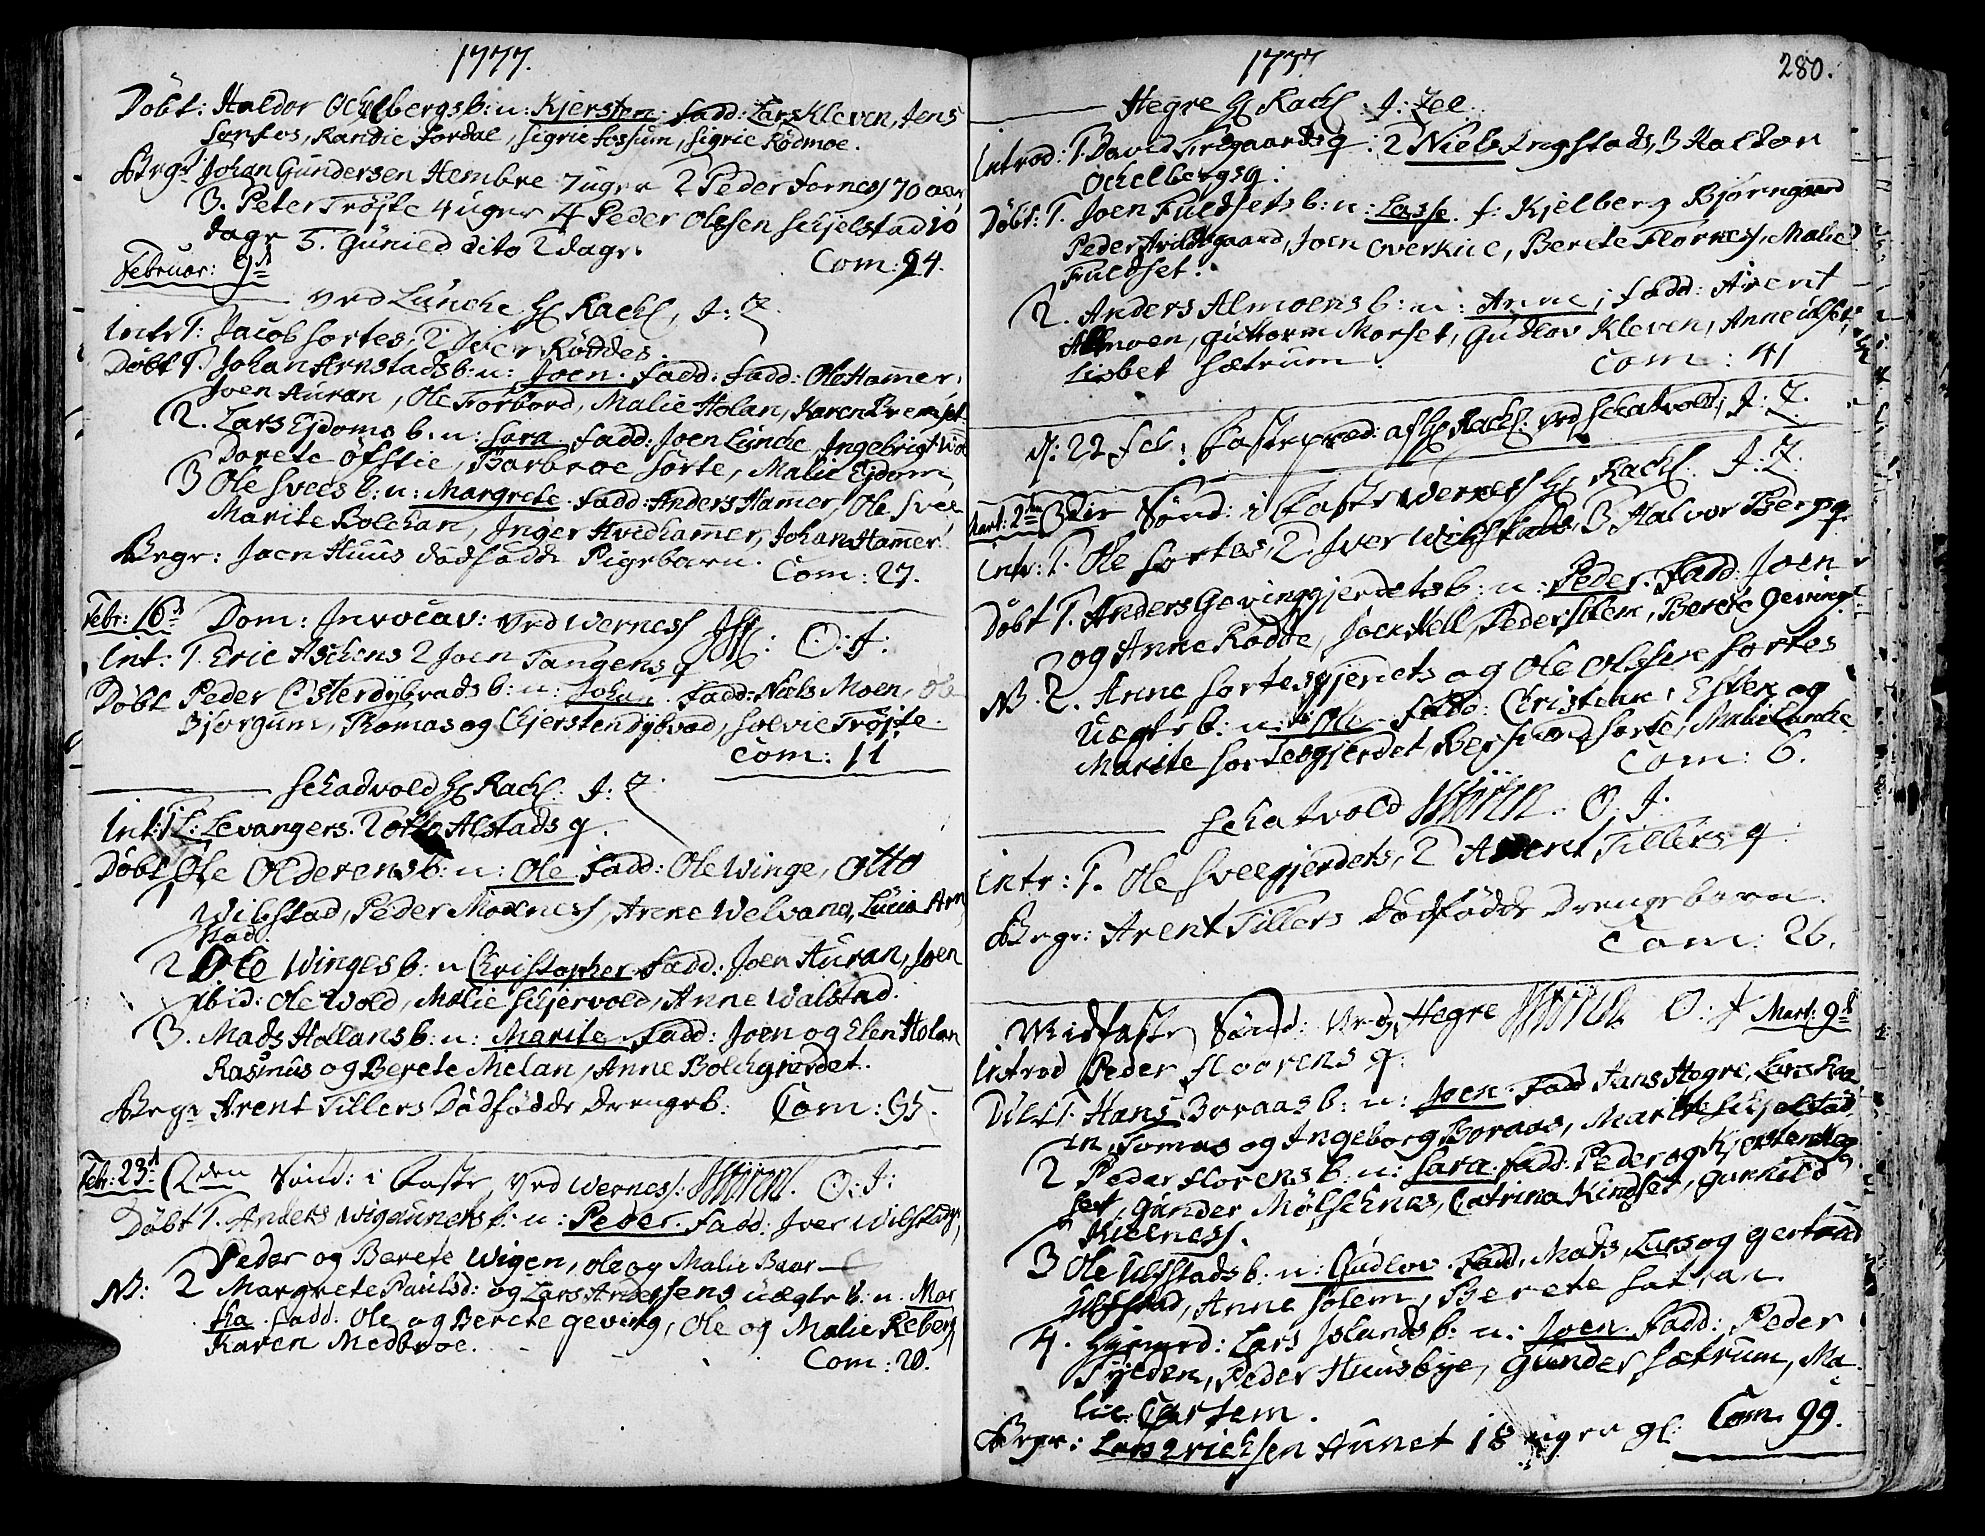 1777.
Døbt: Haldor Ochelbergs b: n: Kjersten. fadd: Lars Kleven, Jens
Sortes, Randie Fordal, Sigrie Fossum, Sigrie Rødmoe.
Begr: Johan Gundersen Hembre 7 uger 2 Peder Fornes 70 aar
3. Peter Trøjte 4 uger 4 Peder Olssen Schjelstad 10
dage 5. Gunild dito 2 dage.
Com: 94.
Februar: 9d
Ved Lunche H Rachl, J: Z.
Intr 1. Jacob Sortes, 2 Iver Røddes.
Døbt 1. Johan Arnstads b: n: Joen. fadd: fadd: Ole Hammer,
Joen Auran, Ole Forbord, Malie Holan, Karen Bremset
2. Lars Ejdoms b: n: Sara fadd: Joen Lunche, Ingebrigt
Dorete Øfstie, Barbroe Sorte, Malie Ejdom,
3 Ole Svees b: n: Margrete. fadd: Anders Hammer, Ole Svee
Marite Bolchan, Inger Hvidhammer, Johan Hammer.
Begr: Joen Huus dødfødde Pigebarn.
Com: 27.
Febr: 16d Dom: Invocav: Ved Werness O: J:
Int: 1. Eric Aschens 2 Joen Tangens q
Døbt Peder Østerdybvads b: n: Johan. fadd: Niels Moen, Ole
Bjorgum, Thomas og Chjersten Dybvad, Solvie Trøjte.
Com: 11
Schadvold H Rachl: J: Z
Int: 1 L: Levangers. 2 Otto Alstads q.
Døbt Ole Olderens b: n: Ole fadd: Ole Winge, Otto
1 Wibstad, Peder Moxness, Anne Welvang, Lucia Arn
stad.
2 Ole Winges b: n Christopher fadd: Joen Auran, Joen
ibid: Ole Wold, Malie Schjervold, Anne Walstad.
3. Mads Hollans b: n: Marite fadd: Joen og Elen Holan
Rasmus og Berete Mélan, Anne Bolchgierdet.
Begr Arent Tillers Dødfødde Drengeb: Com: 95.
Febr: 23d 2den Sønd: i Faste, Ved Werness: O: J:
Døbt 1. Anders Wigdunets b: n: Peder. fadd: Iver Wibstad,
Peder og Berete Wigen, Ole og Malie Baar
NB: 2 Margrete Paulsd: og Lars Andersens uægte b: n: Mar
tha. fadd: Ole og Berete Geving, Ole og Malie Reberg
Karen Medbroe.
Com: 20.
1777
280.
Hegre H Rachl: J: Zel.
Introd: 1. David Firegaards q: 2 Niels Ingstads, 3 Haldor
Ochelbergs q.
Døbt: 1. Joen Fuldsets b: n: Lasse. f: Kjelberg Bjørngaard
Peder Arildsgaard, Joen Overkiil, Berete Flornes, Malie
Fuldset.
2. Anders Almoens b: n: Anne, fadd: Arent
Almoen, Guttorm Morset, Gudlov Kleven, Anne
Lisbet Sætrum.
Com: 41
d: 22 Feb: Fastepræd: af H Rachl: Ved Schatvold, J: Z.
Mart: 2den 3die Sønd: i Faste Werness H Rachl. J: Z.
Intr: 1. Ole Sortes, 2. Iver Wibstads, 3 Halvor Berg q.
Døbt 1. Anders Gevinggjerdets b: n: Peder. fadd: Joen
og Anne Rødde, Joen Hell, Peder Solem, Berete Geving
NB. 2. Anne Sortesgjerdets og Ole Olssen Sortes
uægte b: n: Ole. fadd: Christen, Esten og
Marite Sortesgjerdet, Sorte, Malie Lunche.
Com: 6.
Schatvold O. J.
Intr: 1. Ole Sveegjerdets, 2 Arent Tillers q.
Begr: Arent Tillers Dødfødde Drengebarn.
Com: 26.
Midfaste Sønd: Ved Hegre O: J. Mart: 9d
Introd Peder Floorens q.
Døbt 1. Hans Boraas b: n: Joen. fadd Hans Hegre, Lars
in, Tomas og Ingeborg Boraas, Marite Schjolstad
2 Peder Florens b: n: Sara. fadd: Peder og Kjersten
set, Gunder Mølschnes, Catrina Kindset, Gunnild
Kielness.
3 Ole Ulstads b: n: Gudlov. fadd. Mads, Lars og Gertrud
Ulstad, Anne Solem, Berete Satran.
4. Lars Islands b: n: Joen. fadd: Peder
Fylden, Peder Huusbye, Gunder Sætrum, Ma
lie Cartem.
Begr: Lars Erichsen Hunet 18 uger gl: Com. 99.